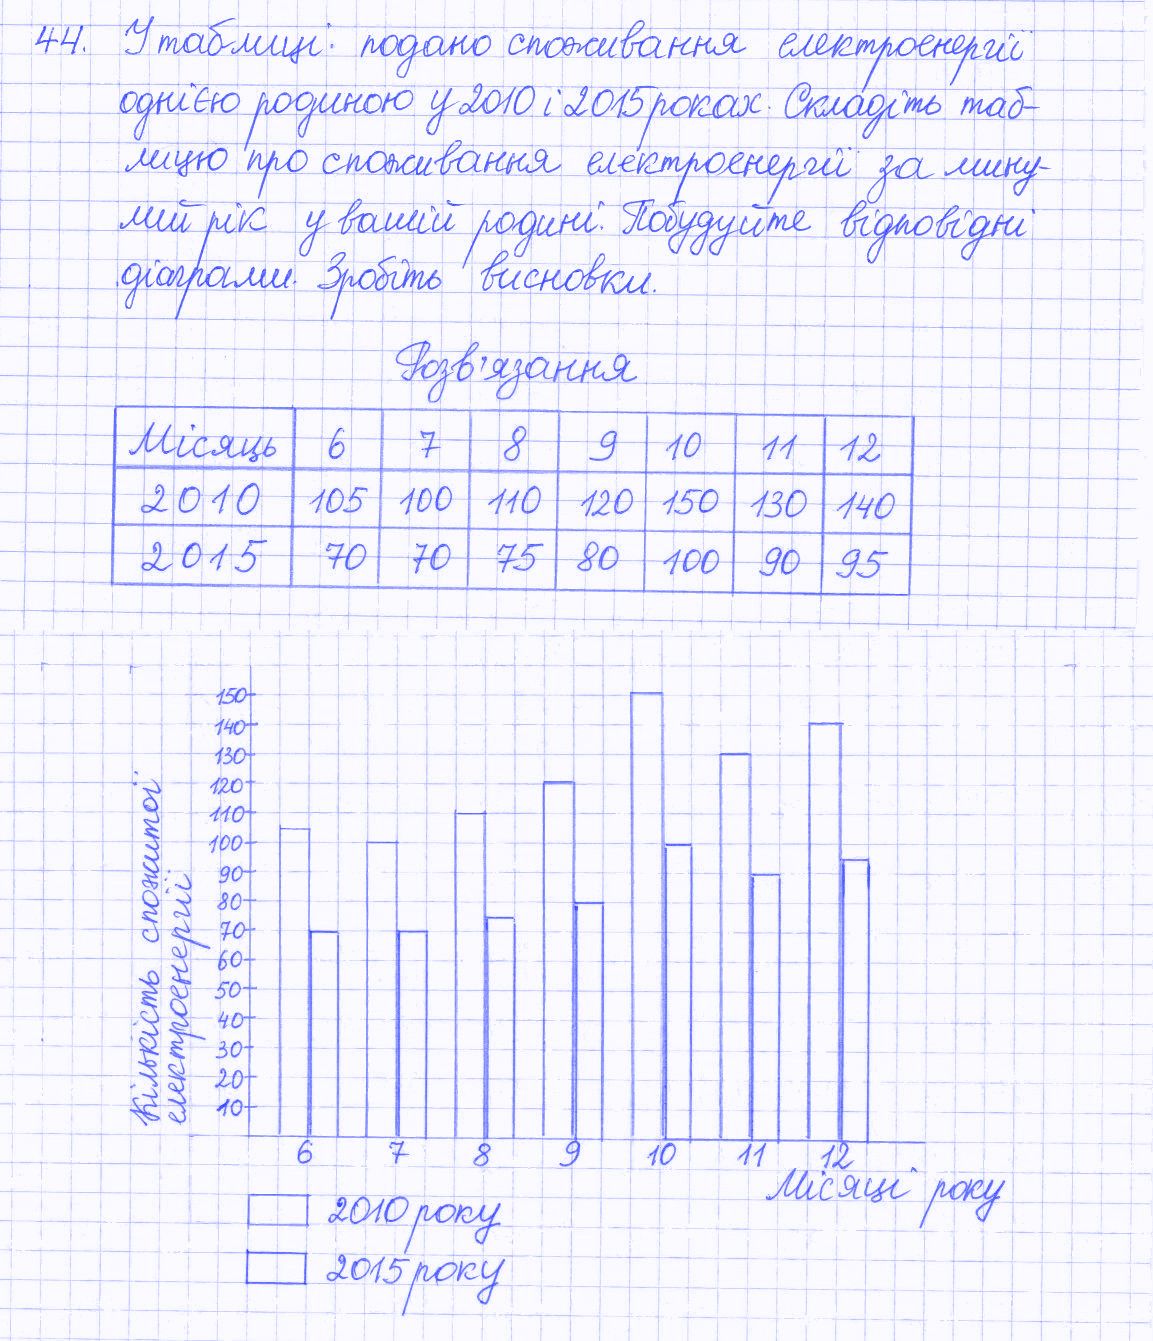 44. У таблиці подано споживання електроенергії
однією родиною у 2010 і 2015 роках. Складіть таб-
лицю про споживання електроенергії за мину-
лий рік у вашій родині. Побудуйте відповідні
діаграми. Зробіть висновки.
Розв'язання
Місяць 6 7 8 9 10 11 12
2010 105 100 110 120 150 130 140
2015 70 70 75 80 100 90 95
Кількість спожитої
електроенергії
150
140
130
120
110
100
90
80
70
60
50
40
30
20
10
6 7 8 9 10 11 12
Місяці року
2010 року
2015 року